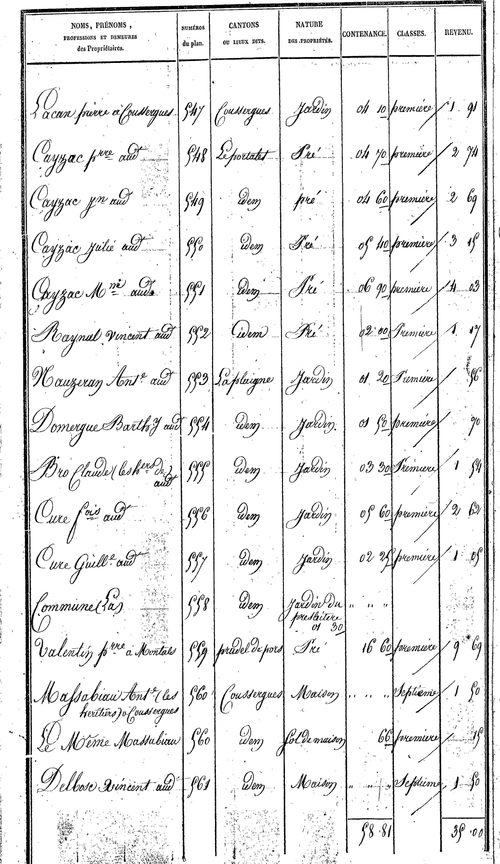 NOMS, PRÉNOMS, PROFESSIONS ET DEMEURES des Propriétaires. NUMÉROS du plan. CANTONS OU LIEUX DITS. NATURE DES PROPRIÉTÉS. CONTENANCE. CLASSES. REVENU.
Lacan pierre à Coussergues 547 Coussergues Jardin 04 10 première 1 91
Cayzac pre aud 548 Le portalet Pré 04 70 première 2 74
Cayzac jn aud 549 idem pré 04 60 première 2 69
Cayzac Julie aud 550 idem Pré 05 40 première 3 15
Cayzac Mnè aud 551 idem Pré 06 90 première 4 03
Raynal vincent aud 552 idem Pré 02 00 Premiere 1 17
Nauzeran Ante aud 553 La plaigne Jardin 01 20 Premiere 56
Domergue Barthy aud 554 idem Jardin 01 50 première 70
Bro Claude (les hers de) aud 555 idem Jardin 03 30 Premiere 1 54
Cure fois aud 556 idem Jardin 05 60 premiere 2 62
Cure Guille aud 557 idem Jardin 02 25 première 1 05
Commune (La) 558 idem Jardin du presbitere 01 30 " " "
Valentin pre à Montals 559 prudel de pors Pré 16 60 première 9 69
Massabiau Ante (les heritiers) à Coussergues 560 Coussergues Maison " " " Septième 1 50
Le Même Massabiau 560 idem Sol de maison 66 premiere 15
Delbose vincent aud 561 idem Maison " " " Septieme 1 50
58 81 35 00